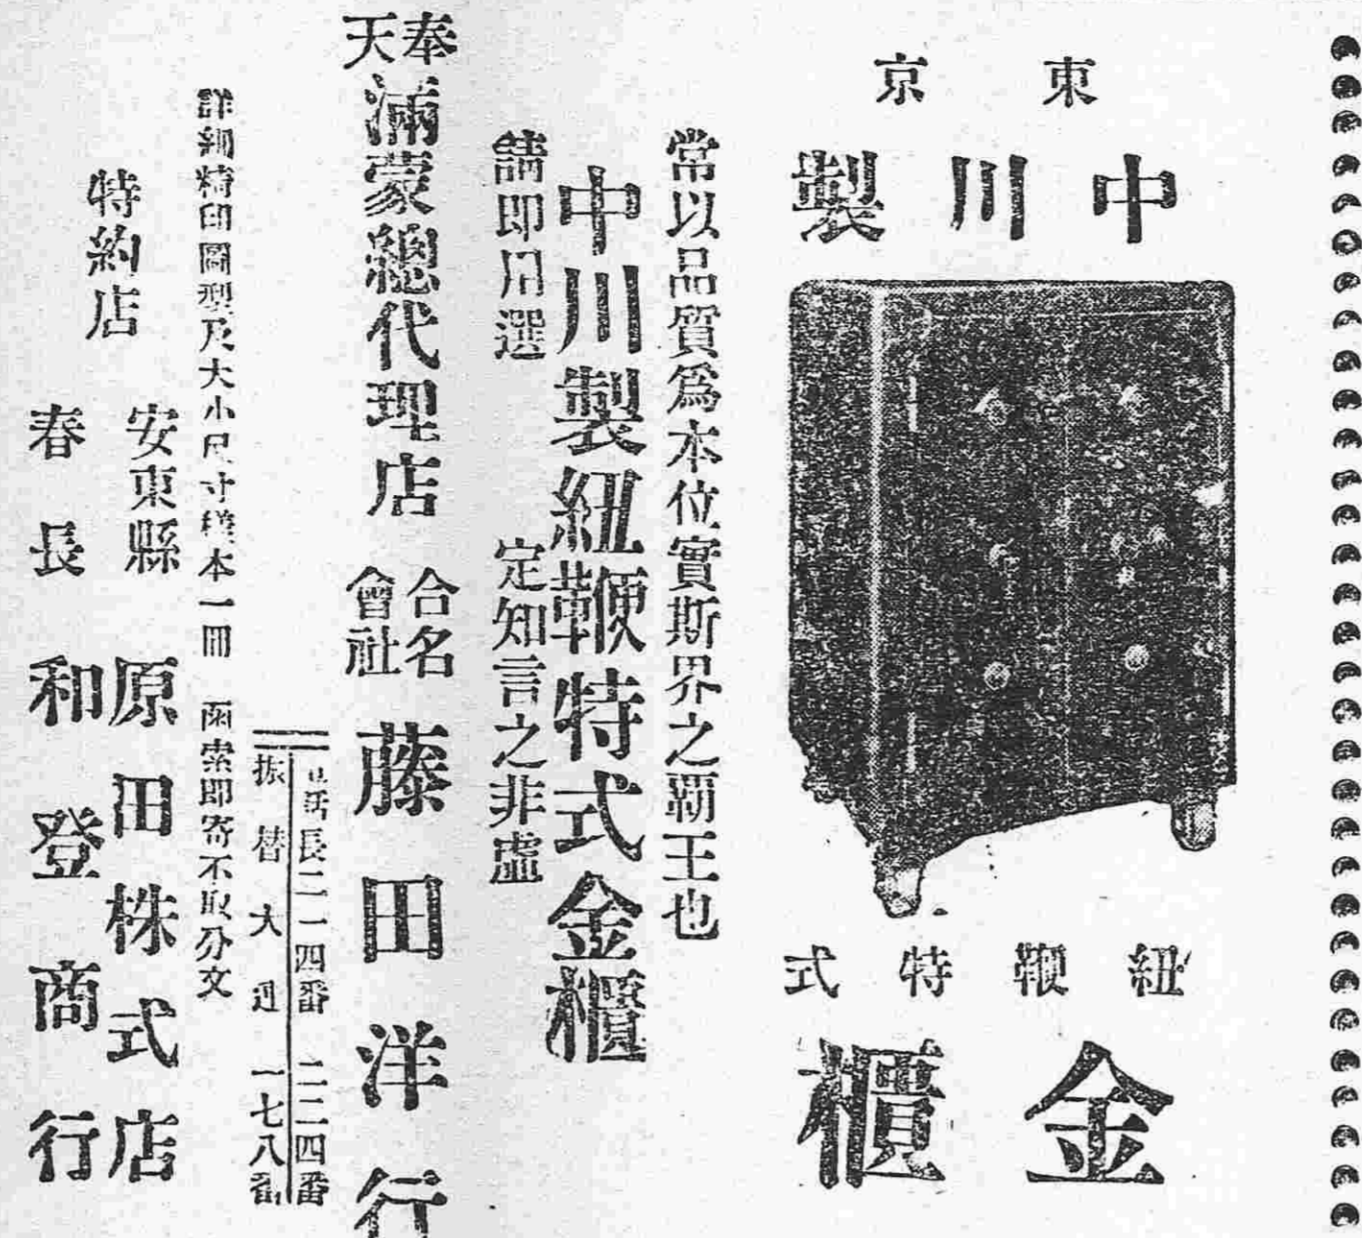 東京
中川製
紐鞭特式
金櫃
常以品質爲本位實斯界之覇王也
中川製紐鞭特式金櫃
請卽用選 定知言之非虛
奉天
滿蒙總代理店
合名
會社
藤田洋行
長二一四番 二二四番
振替大連一七八番
詳細精印圖型及大小尺寸樣本一冊 函索卽寄不取分文
特約店
安東縣 原田株式店
長春 和登商行